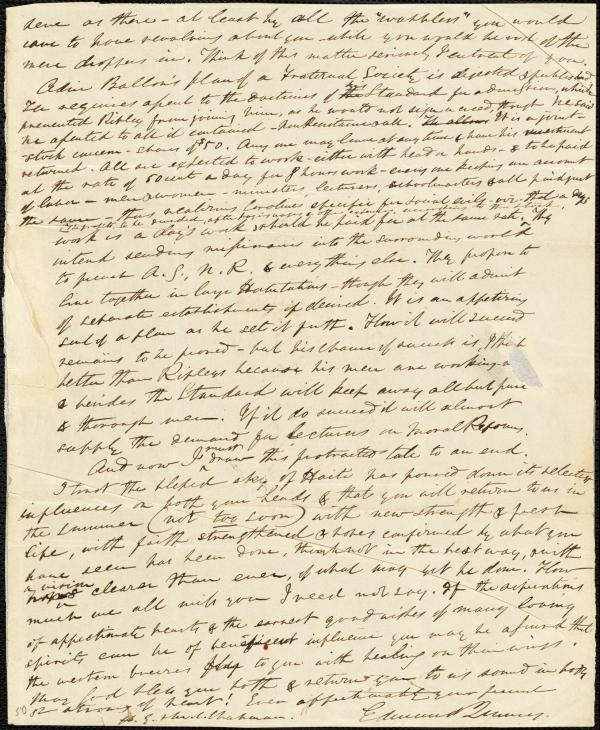 here as there - at least by all the "wabblers" you would
came to have revolving about you while you would be rid of the
mere droppers in. Think of this matter seriously I entreat of you.
Adin Ballou's plan of a Fraternal Society is digested & published.
He requires assent to the doctrines of the Standard for admission, which
prevented Ripley from joining him, as he would not sign a creed, though he said
he assented to all it contained - Antiunitarian & all. It is a joint-
stock concern - shares of $50. Any one may leave at any time & have his investment
returned. All are expected to work - either with head or hands - & to be paid
at the rate of 50 cents a day for 8 hours work - every one keeping an account
of labor - men & women - ministers, lecturers, schoolmasters & all paid just
the same - thus realizing Caroline's specific for social evils viz: that a day's
work is a day's work & should be paid for at the same rate. They
intend sending missionaries into the surrounding world
to preach A.S., N.R. & everything else. They propose to
live together in large Habitations - though they will admit
of separate establishments if desired. It is an appetizing
sort of a plan as he sets it forth. How it will succeed
remains to be proved - but his chance of success is, I think
better than Ripley's because his men are working on
& besides the Standard will keep away all but pure
& thorough men. If it do succeed it will almost
supply the demand for Lecturers on Moral Reforms.
And now I must draw this protracted tale to an end.
I trust the blessed sky of Haiti has poured down its selectest
influences on both your heads & that you will return to us in
the summer (not too soon) with new strength & fresh
life, with faith strengthened & hopes confirmed by what you
have seen has been done, though not in the best way, & with
a vision clearer than ever, of what may yet be done. How
much we all miss you I need not say. If the aspirations
of affectionate hearts & the earnest good wishes of many loving
spirits can be of beneficent influence you may be assured that
the western breezes to you with healing on their wings.
May God bless you both & return you to us sound in body
& strong of heart! Ever affectionately your friend
H. G. & M. W. Chapman. Edmund Quincy.
50